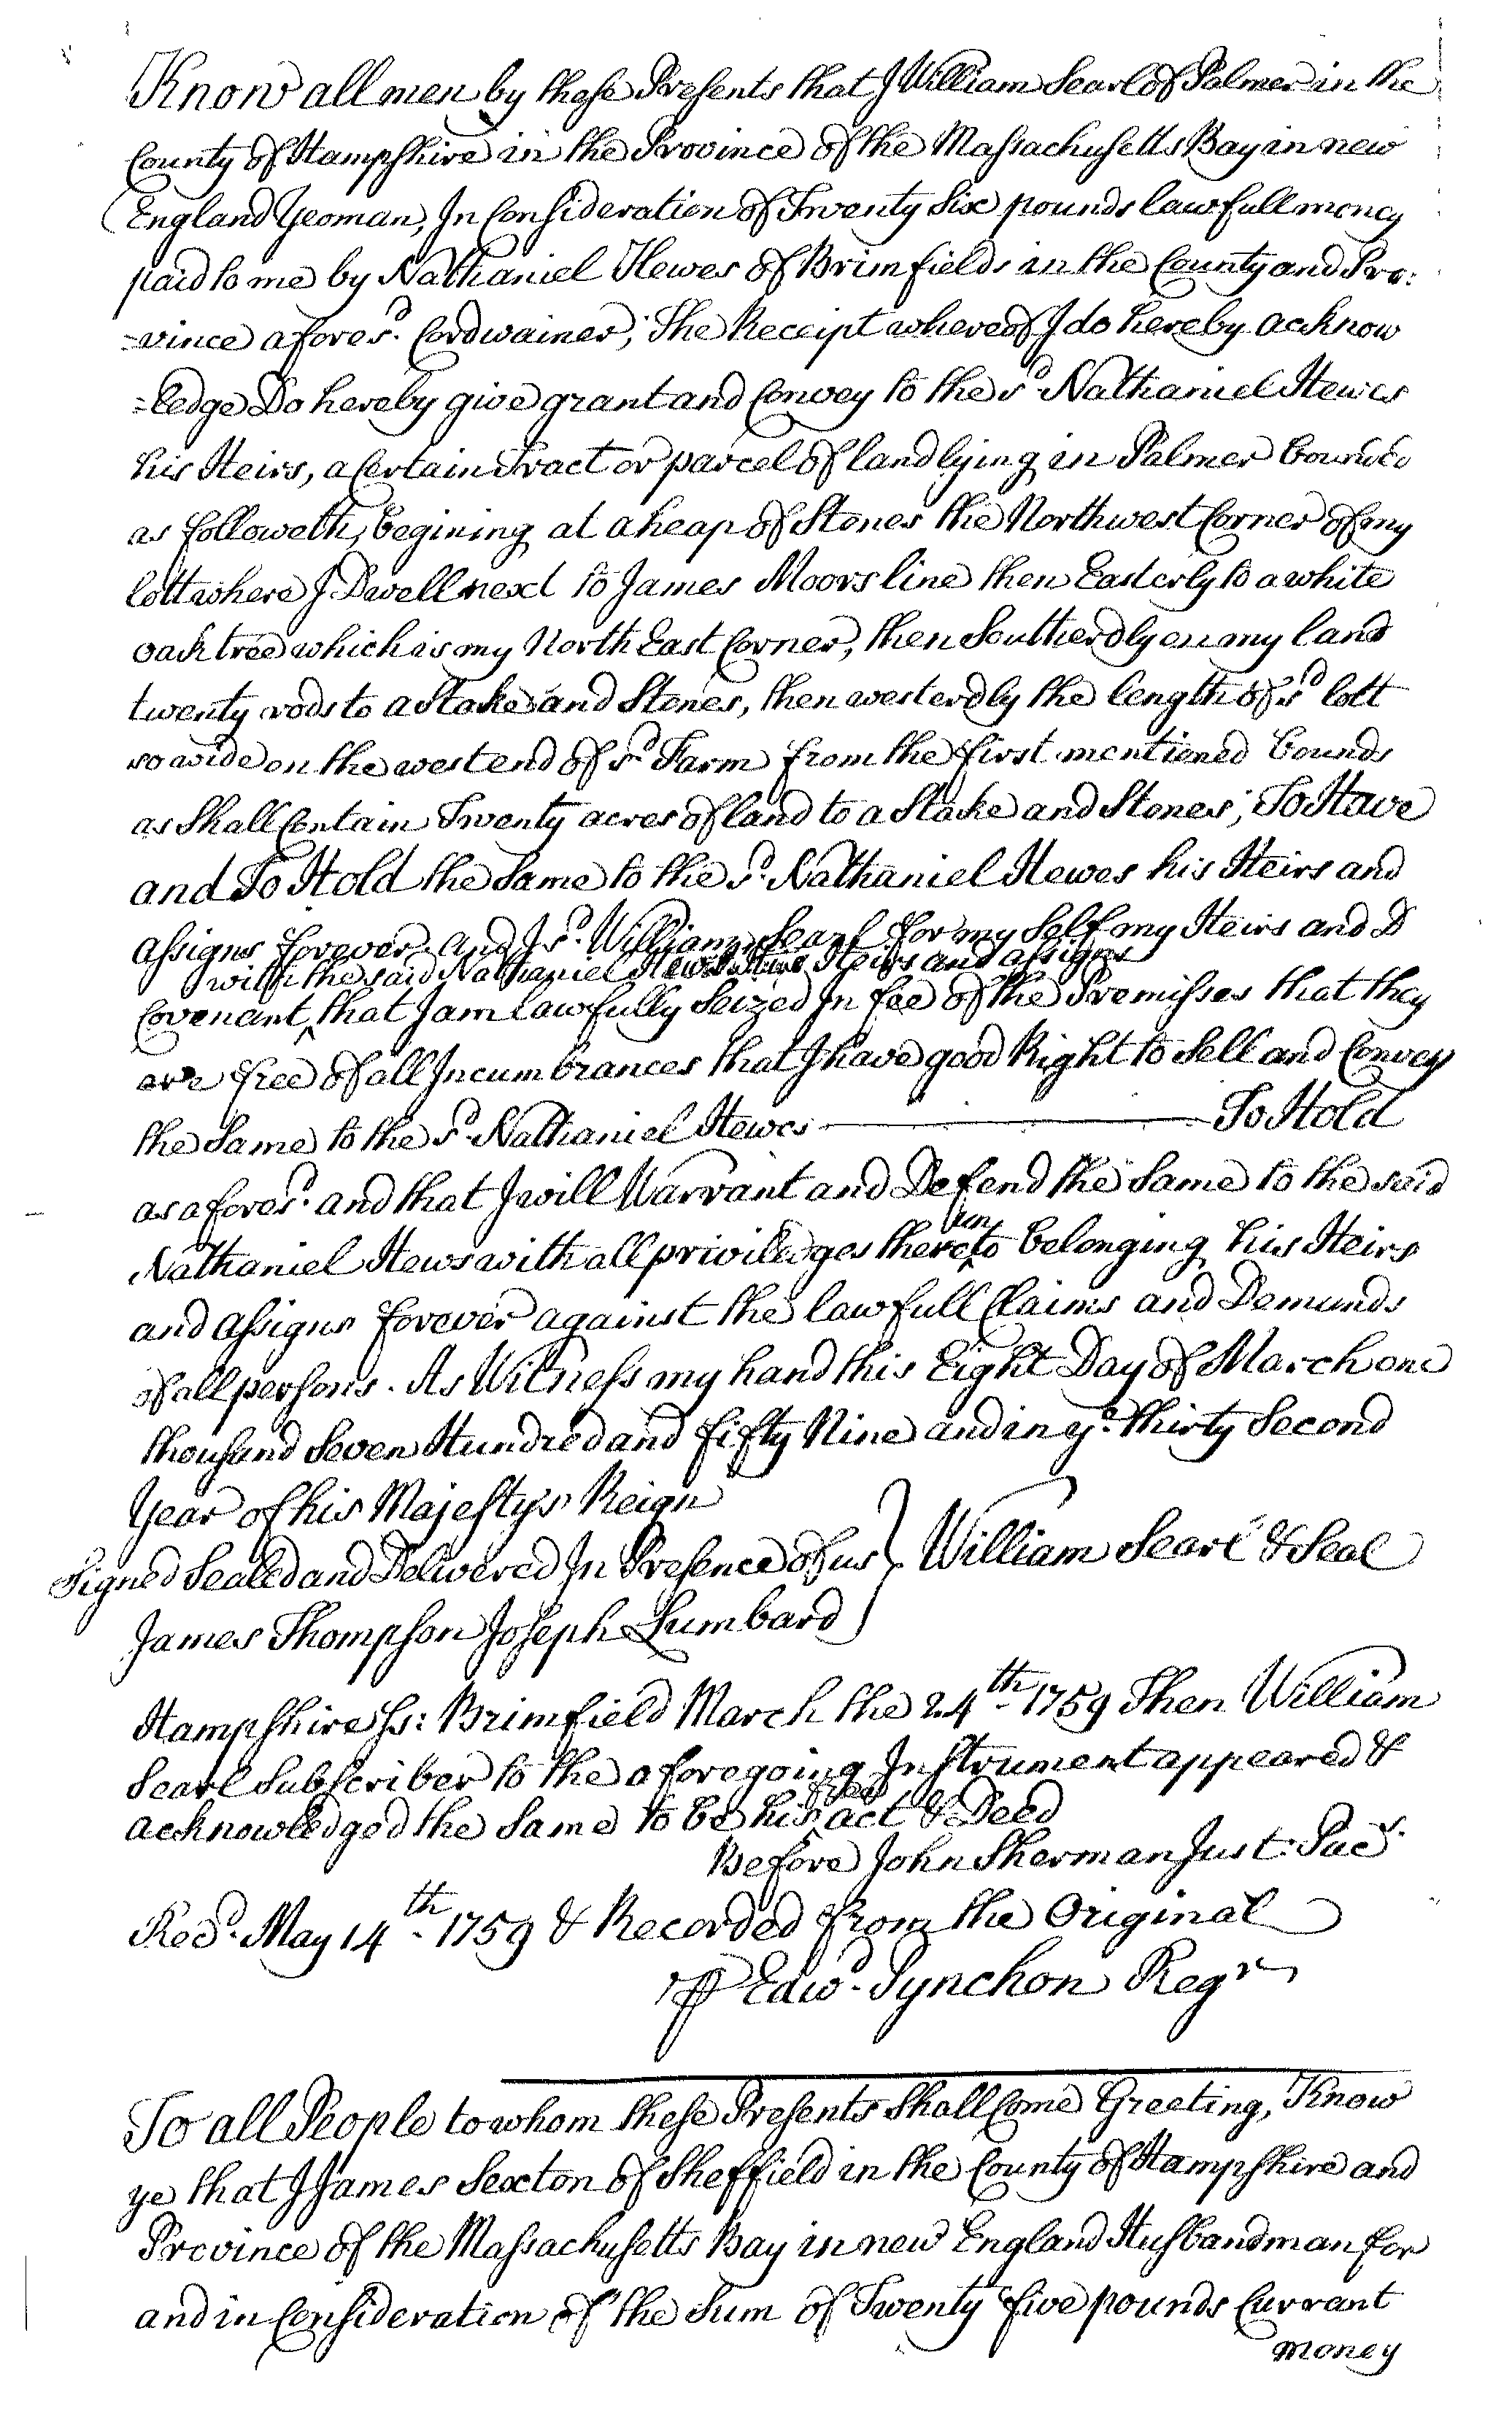 Know all men by these Presents that I William Searl of Palmer in the
County of Hampshire in the Province of the Massachusetts Bay in new
England Yeoman, In Consideration of Twenty Six pounds lawfull money
paid to me by Nathaniel Hewes of Brimfield in the County and Pro:
=vince afores.d Cordwainer, The Receipt whereof I do hereby acknow
=ledge Do hereby give grant and Convey to the s.d Nathaniel Hewes
his Heirs, a Certain Tract or parcel of land lying in Palmer bounded
as followeth, begining at a heap of Stones the Northwest Corner of my
lott where I Dwell next to James Moors line then Easterly to a white
oak tree which is my North East Corner, then Southerdly on my land
twenty rods to a Stake and Stones, then westerdly the length of s.d lott
so wide on the west end of s.d Farm from the first mentioned bounds
as Shall Contain Twenty acres of land to a Stake and Stones; To Have
and To Hold the Same to the s.d Nathaniel Hewes his Heirs and
assigns forever. and I s.d William Searl for my self my Heirs and D
with the said Nathaniel Hews his Heirs and assigns
Covenant, ‸ that I am lawfully Seized In fee of the Premisses that they
are free of all Incumbrances that I have good Right to Sell and Convey
the Same to the s.d Nathaniel Hewes ——— To Hold
as afores.d and that I will Warrant and Defend the Same to the said
un
Nathaniel Hews with all priviledges there‸to belonging his Heirs
and assigns forever against the lawfull Claims and Demands
of all persons. As Witness my hand this Eight Day of March one
thousand Seven Hundred and fifty Nine and in y.e thirty Second
Year of his Majesty's Reign
Signed Sealed and Delivered In Presence of us } William Searl & Seal
James Thompson Joseph Lumbard
Hampshire Ss: Brimfield March the 24.th 1759 Then William
Searl Subscriber to the aforegoing Instrument appeared &
free
acknowledged the Same to be his ‸ act & Deed
Before John Sherman Just: Pac.s
Rec.d May 14.th 1759 & Recorded from the Original
⅌ Edw.d Pynchon Reg.r
To all People to whom these Presents Shall Come Greeting, Know
ye that I James Sexton of Sheffield in the County of Hampshire and
Province of the Massachusetts Bay in new England Husbandman for
and in Consideration of the Sum of Twenty five pounds Currant
money